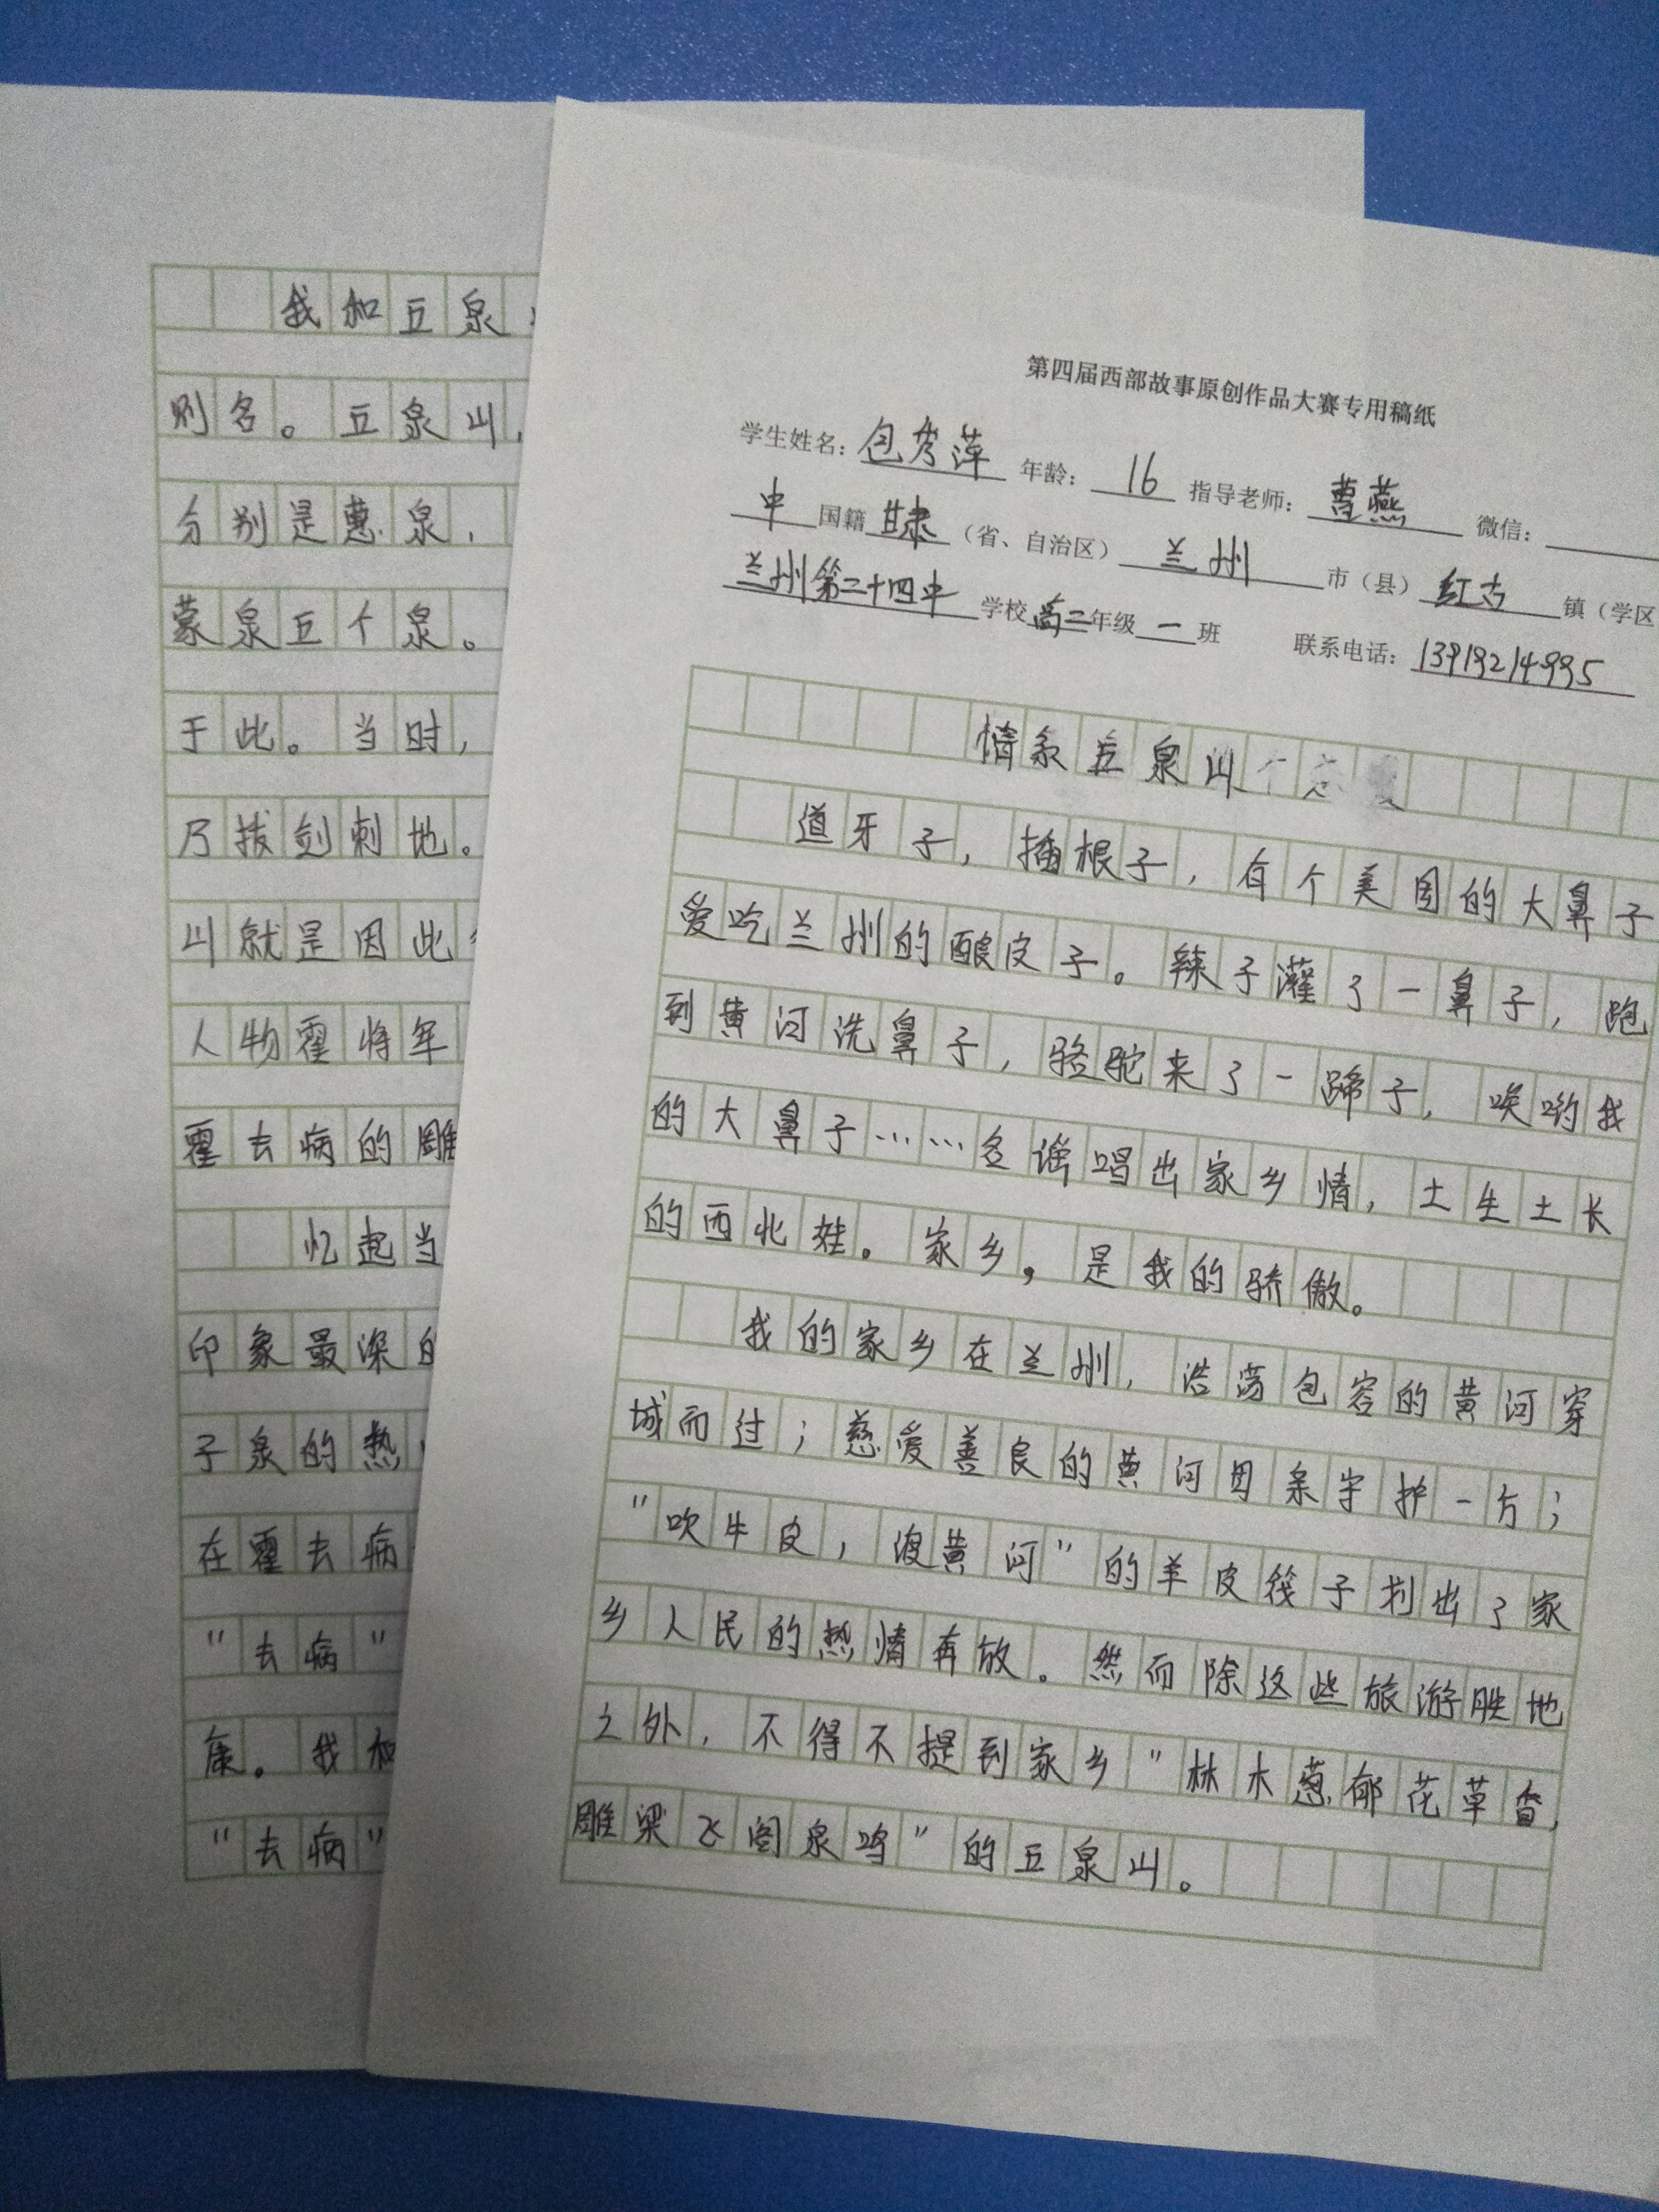 第四届西部故事原创作品大赛专用稿纸
学生姓名：包秀萍 年龄：16 指导老师：曹燕 微信：
中国籍 甘肃（省、自治区）兰州市（县）红古镇（学区
兰州第二十四中学校高二年级一班 联系电话：13919214995
情系五泉山
道牙子，插根子，有个美国的大鼻子
爱吃兰州的酿皮子。辣子灌了一鼻子，跑
到黄河洗鼻子，骆驼来了一蹄子，唉哟我
的大鼻子……谣唱出家乡情，土生土长
的西北娃。家乡，是我的骄傲。
我的家乡在兰州，浩荡包容的黄河穿
城而过；慈爱善良的黄河母亲守护一方；
“吹牛皮，渡黄河”的羊皮筏子划出了家
乡人民的热情奔放。然而除这些旅游胜地
之外，不得不提到家乡“林木葱郁花草香，
雕梁飞阁泉鸣”的五泉山。
我和五泉
别名。五泉山，
分别是惠泉，
蒙泉五个泉。
于此。当时，
乃拔剑刺地。
山就是因此
人物霍将军
霍去病的雕
忆起当
印象最深的
子泉的热
在霍去病
“去病”
康。我和
“去病”